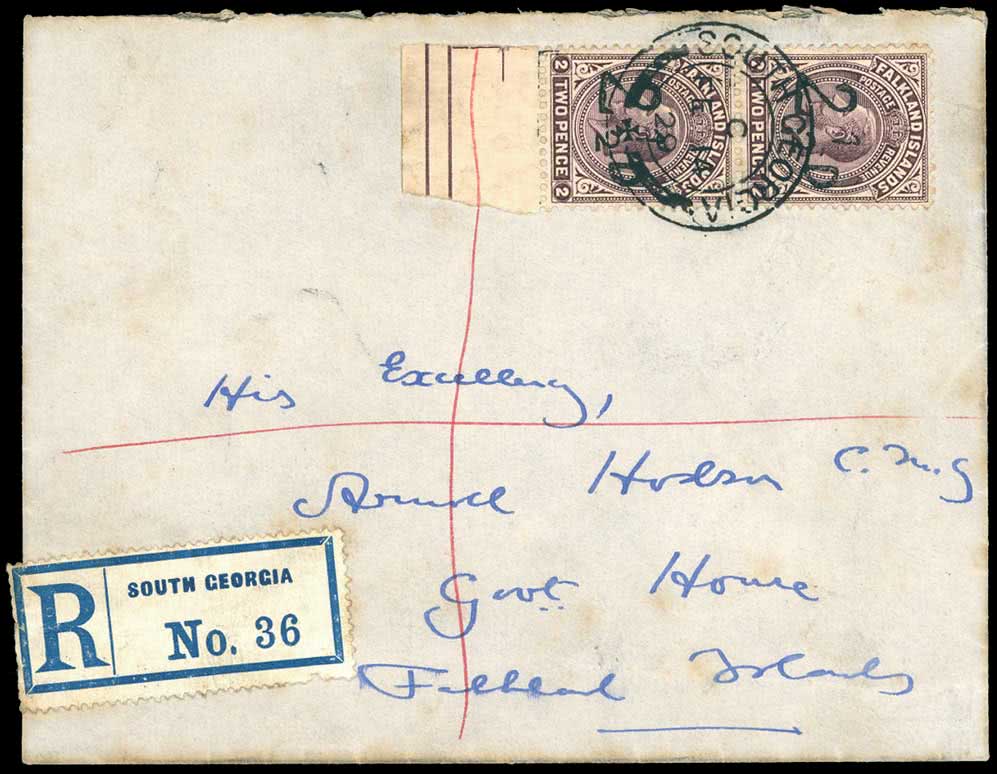 FALKLAND ISLANDS
POSTAGE REVENUE
2 TWO PENCE 2
FALKLAND ISLANDS
POSTAGE REVENUE
TWO PENCE
SOUTH GEORGIA
His Excellency,
Arnold Hodson C.M.G
Govt. House
Falkland Islands
R SOUTH GEORGIA
No. 36